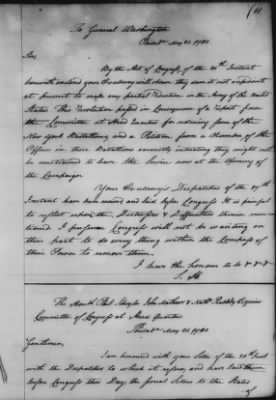 To General Washington
Philada May 23. 1780
Sir,
By the Act of Congress of the 20th Instant
herewith inclosed your Excellency will observe they deem it not expedient
at present to make any partial Reduction in the Army of the United
States. This Resolution passed in Consequence of a Report from
the Committee at Head Quarters for reducing some of the
New York Battalions, and a Petition from a Number of the
Officers in those Battalions earnestly intreating they might not
be constrained to leave the Service now at the Opening of
the Campaign
Your Excellency's Despatches of the
Instant have been received and laid before Congress. It is painful
to reflect upon the Distresses & Difficulties therein men
tioned. I presume Congress will not be wanting on
their part to do every thing within the Compass of
their Power to remove them.
I have the honour to be &c &c
S. H.
The Honble Phil. Schuyler John Mathews & Nathl Peabody Esquires
Committee of Congress at Head Quarters
Philada May 23 1780
Gentlemen,
I am honored with your Letter of the Inst
with the Despatches to which it refers, and have laid them
before Congress this Day, the several Letters to the States
of